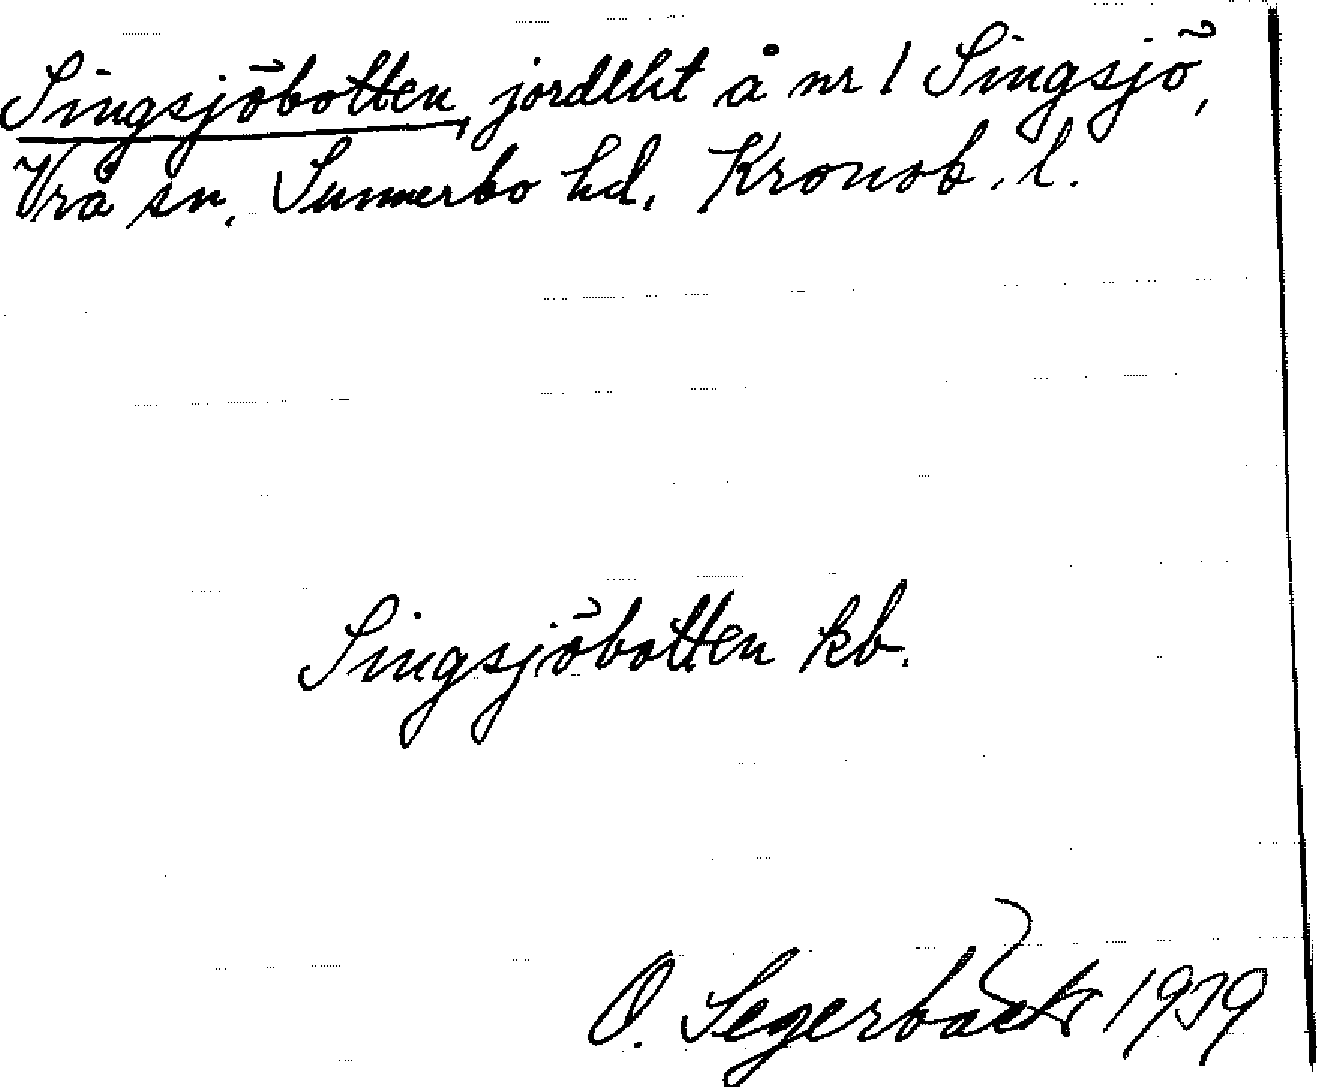 Singsjöbotten, jordlht å nr 1 Singsjö,
Vrå sn. Sunnerbo hd. Kronob. l.
Singsjöbotten kb.
O. Segerbäck 1939